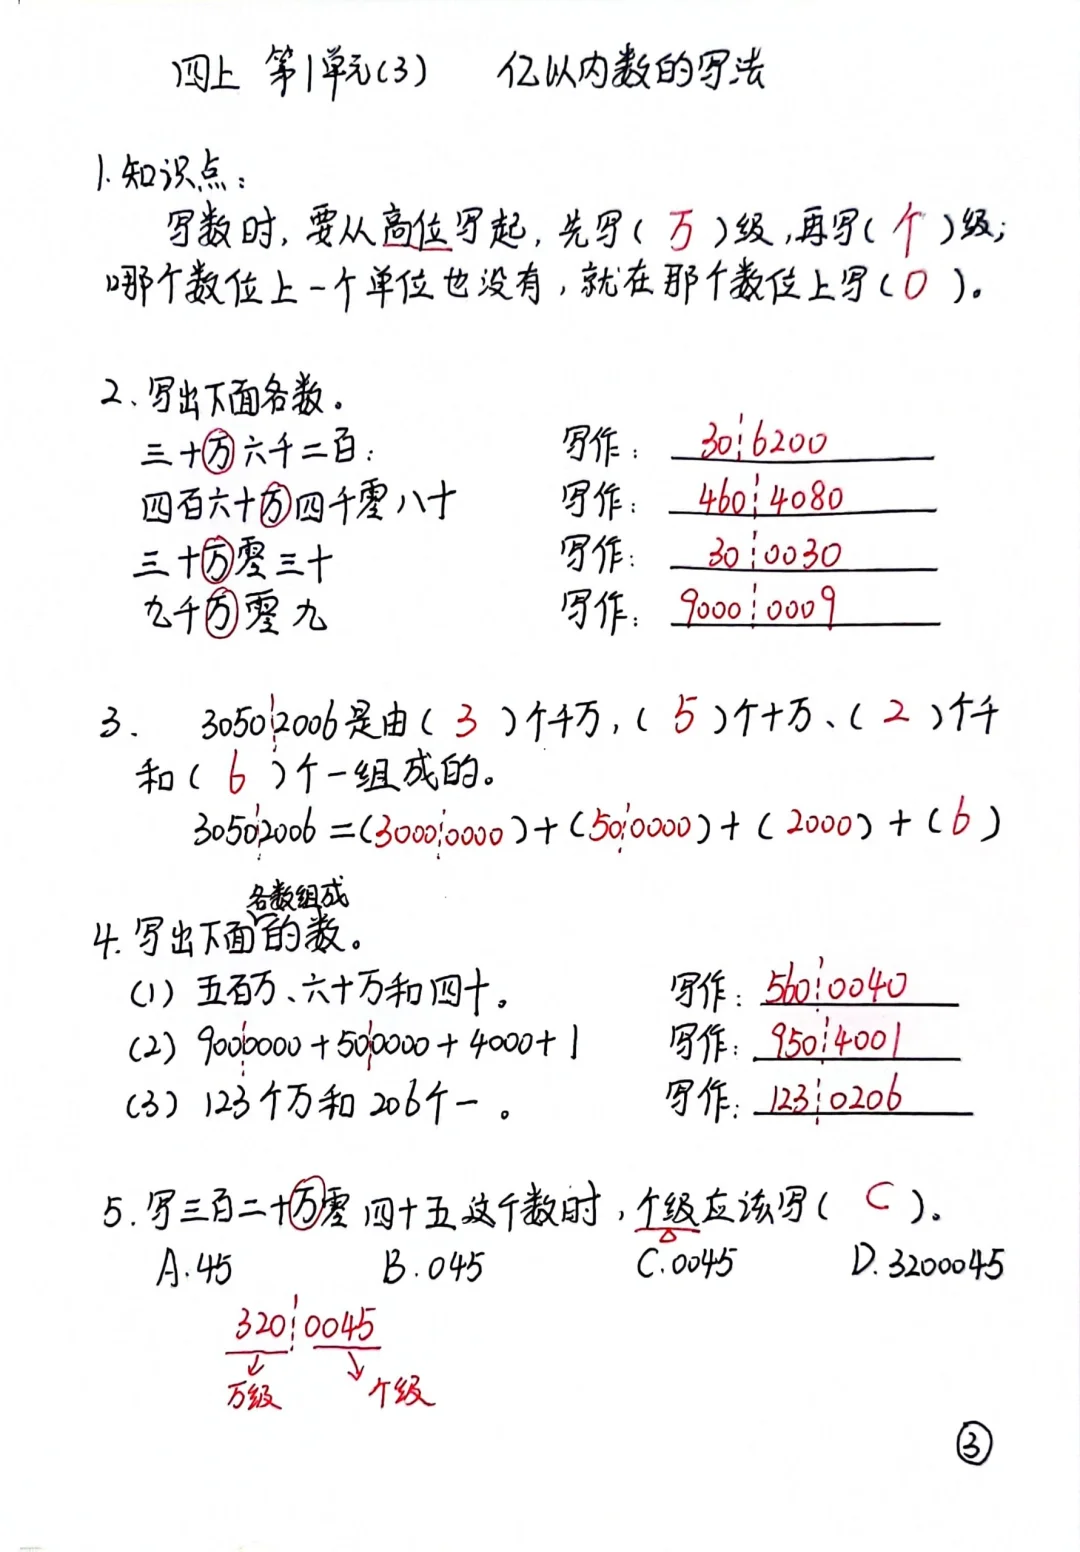 四上 第1单元(3) 亿以内数的写法
1.知识点:
写数时,要从高位写起,先写(万)级,再写(个)级;
哪个数位上一个单位也没有,就在那个数位上写(0)。
2、写出下面各数。
三十万六千二百: 写作: 30┆6200
四百六十万四千零八十 写作: 460┆4080
三十万零三十 写作: 30┆0030
九千万零九 写作: 9000┆0009
3. 3050┆2006是由(3)个千万,(5)个十万、(2)个千
和(6)个一组成的。
3050┆2006=(3000┆0000)+(50┆0000)+(2000)+(6)
各数组成
4.写出下面的数。
(1)五百万、六十万和四十。 写作: 560┆0040
(2)900┆0000+50┆0000+4000+1 写作: 950┆4001
(3)123个万和206个一。 写作: 123┆0206
5.写三百二十万零四十五这个数时,个级应该写(C)。
A.45 B.045 C.0045 D.3200045
320┆0045
万级 个级
③